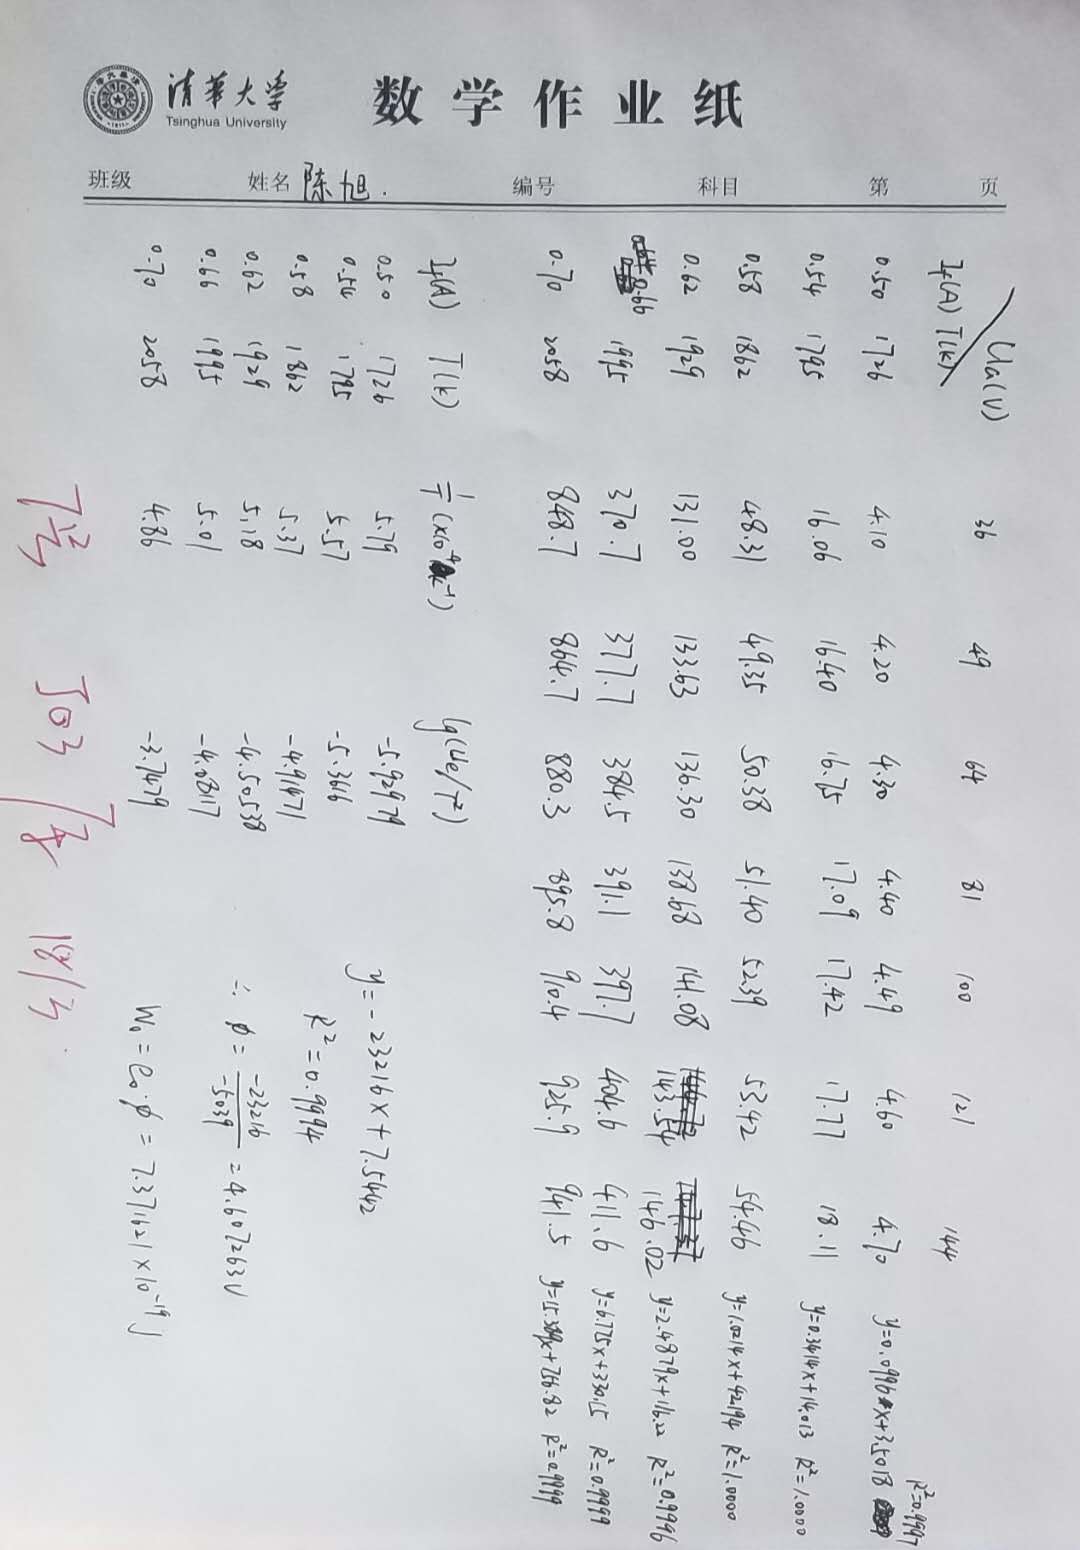 清华大学
Tsinghua University
数学作业纸
班级 姓名 陈旭. 编号 科目 第 页
Ua(V) 36 49 64 81 100 121 144
If(A) T(K)
0.50 1726 4.10 4.20 4.30 4.40 4.49 4.60 4.70 y=0.0996x+3.5018 R²=0.9997
0.54 1795 16.06 16.40 16.75 17.09 17.42 17.77 18.11 y=0.3414x+14.013 R²=1.0000
0.58 1862 48.31 49.35 50.38 51.40 52.39 53.42 54.46 y=1.0214x+42.194 R²=1.0000
0.62 1929 131.00 133.63 136.30 138.68 141.08 143.54 146.02 y=2.4879x+116.22 R²=0.9996
0.66 1995 370.7 377.7 384.5 391.1 397.7 404.6 411.6 y=6.775x+330.15 R²=0.9999
0.70 2058 848.7 864.7 880.3 895.8 910.4 925.9 941.5 R²=0.9999
If(A) T(K) 1/T (×10⁻⁴K⁻¹) lg(Ie/T²)
0.50 1726 5.79 -5.92979
0.54 1795 5.57 -5.3646
0.58 1862 5.37 -4.91471
0.62 1929 5.18 -4.50538
0.66 1995 5.01 -4.0817
0.70 2058 4.86 -3.7479
y=-23216x+7.5442
R²=0.9994
∴ φ = -23216/-5039 = 4.607263V
W₀=e₀·φ = 7.371621×10⁻¹⁹J